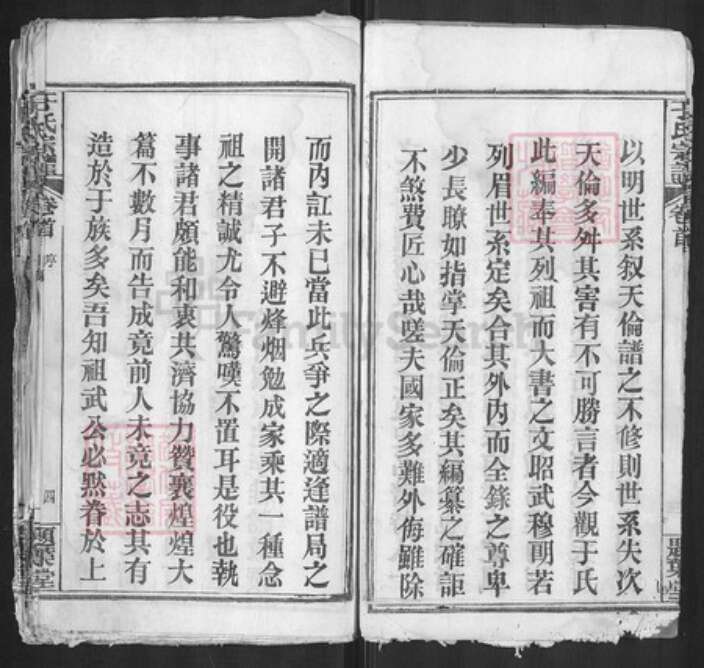 以明世系叙天倫譜之不修則世系失次
天倫多舛其害有不可勝言者今觀于氏
此編奉其列祖而大書之文昭武穆朗若
列眉世系定矣合其外內而全錄之尊卑
少長瞭如指掌天倫正矣其編纂之確詎
不煞費匠心哉嗟夫國家多難外侮雖除
而內訌未已當此兵爭之際適逢譜局之
開諸君子不避烽烟勉成家乘其一種念
祖之精誠尤令人驚嘆不置耳是役也執
事諸君頗能和衷共濟協力贊襄煌煌大
篇不數月而告成竟前人未竟之志其有
造於于族多矣吾知祖武公必默眷於上
于氏宗譜 卷首 序
四
FamilySearch